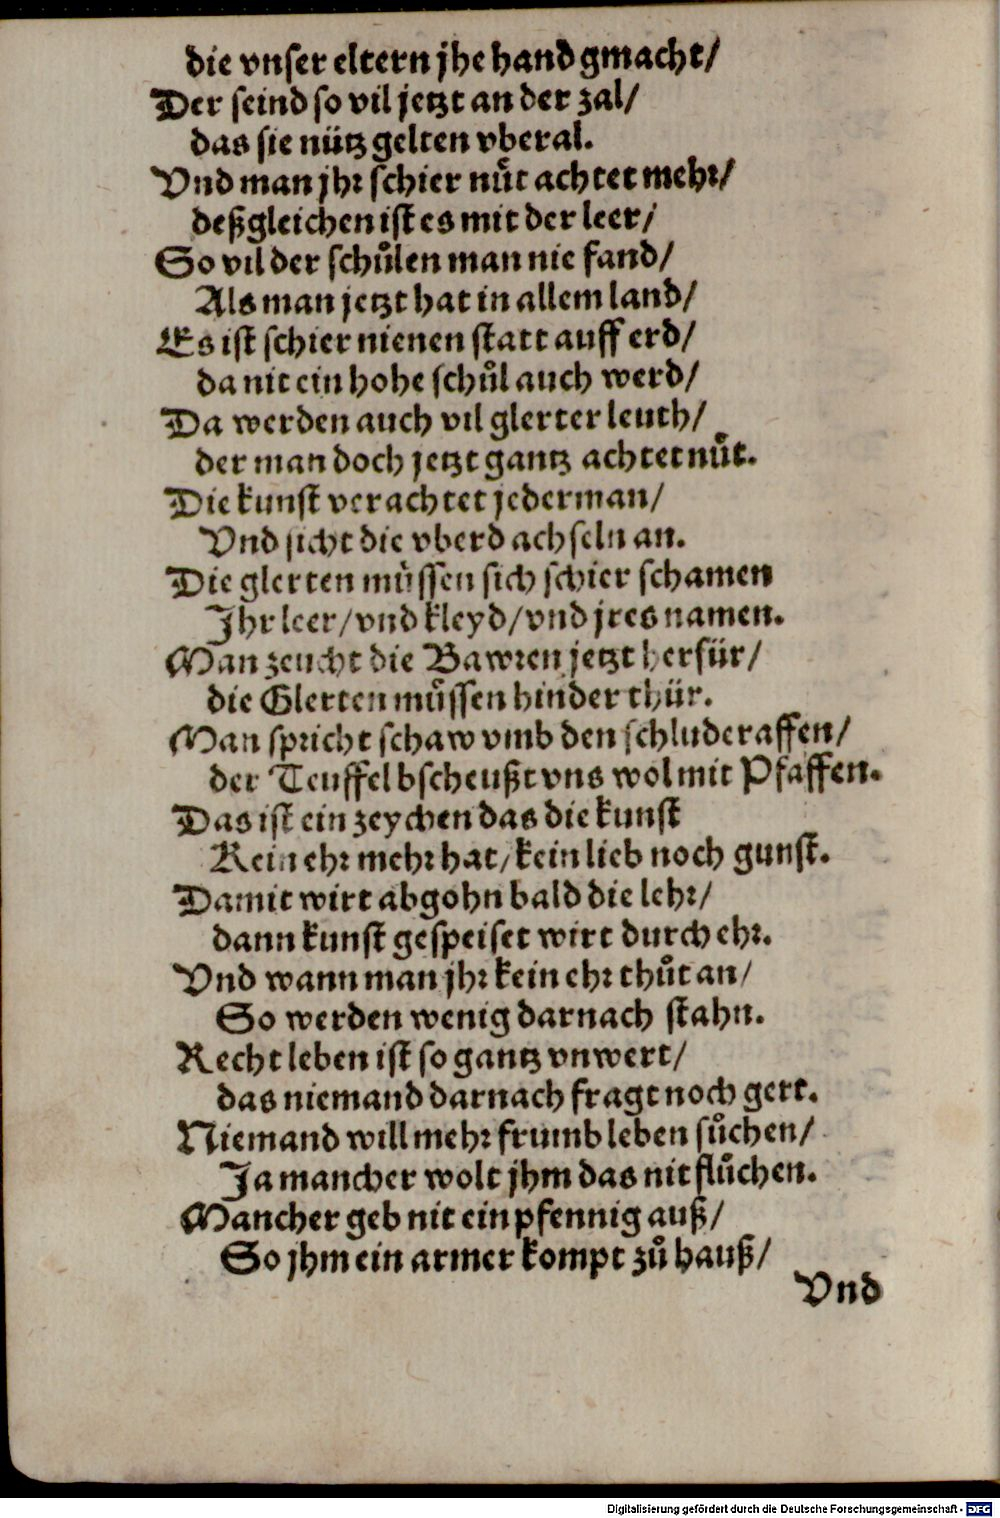 die vnser eltern jhe hand gmacht/
Der seind so vil jetzt an der zal/
das sie nütz gelten vberal.
Vnd man jhr schier nuͤt achtet mehr/
deßgleichen ist es mit der leer/
So vil der schuͦlen man nie fand/
Als man jetzt hat in allem land/
Es ist schier nienen statt auff erd/
da nit ein hohe schuͦl auch werd/
Da werden auch vil glerter leuth/
der man doch jetzt gantz achtet nuͤt.
Die kunst verachtet jederman/
Vnd sicht die vberd achseln an.
Die glerten muͤssen sich schier schamen
Jhr leer/vnd kleyd/vnd jres namen.
Man zeucht die Bawren jetzt herfür/
die Glerten muͤssen hinder thür.
Man spricht schaw vmb den schluderaffen/
der Teuffel bscheußt vns wol mit Pfaffen.
Das ist ein zeychen das die kunst
Kein ehr mehr hat/kein lieb noch gunst.
Damit wirt abgohn bald die lehr/
dann kunst gespeiset wirt durch ehr.
Vnd wann man jhr kein ehr thuͦt an/
So werden wenig darnach stahn.
Recht leben ist so gantz vnwert/
das niemand darnach fragt noch gert.
Niemand will mehr frumb leben suͦchen/
Ja mancher wolt jhm das nit fluͦchen.
Mancher geb nit ein pfennig auß/
So jhm ein armer kompt zuͦ hauß/
Vnd
Digitalisierung gefördert durch die Deutsche Forschungsgemeinschaft - DFG